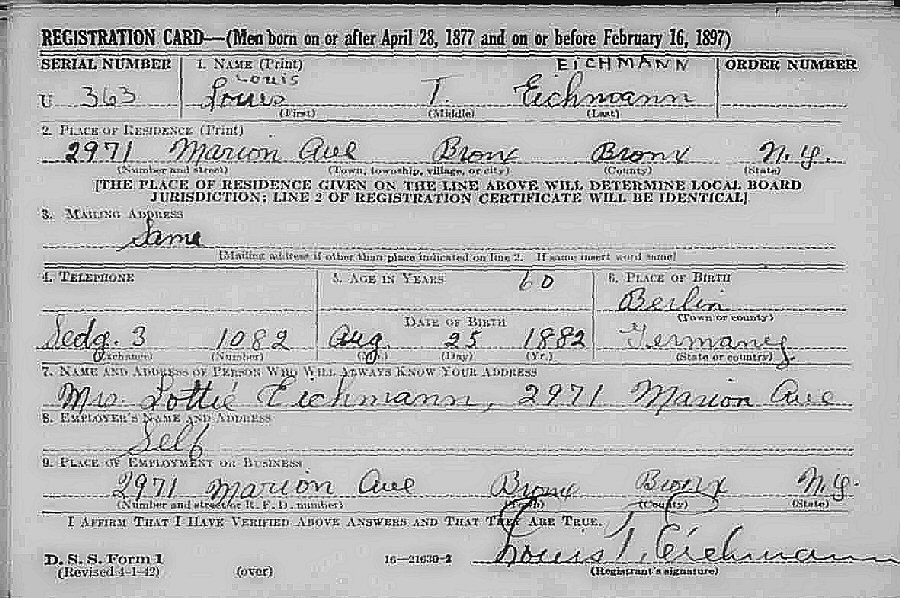 REGISTRATION CARD—(Men born on or after April 28, 1877 and on or before February 16, 1897)
SERIAL NUMBER 1. NAME (Print) EICHMANN ORDER NUMBER
Louis
U 363 Louis T. Eichmann
(First) (Middle) (Last)
2. PLACE OF RESIDENCE (Print)
2971 Marion Ave Bronx Bronx N.Y.
(Number and street) (Town, township, village, or city) (County) (State)
[THE PLACE OF RESIDENCE GIVEN ON THE LINE ABOVE WILL DETERMINE LOCAL BOARD
JURISDICTION; LINE 2 OF REGISTRATION CERTIFICATE WILL BE IDENTICAL]
3. MAILING ADDRESS
Same
[Mailing address if other than place indicated on line 2. If same insert word same]
4. TELEPHONE 5. AGE IN YEARS 60 6. PLACE OF BIRTH
Berlin
DATE OF BIRTH (Town or county)
Sedg. 3 1082 Aug. 25 1882 Germany
(Exchange) (Number) (Mo.) (Day) (Yr.) (State or country)
7. NAME AND ADDRESS OF PERSON WHO WILL ALWAYS KNOW YOUR ADDRESS
Mrs. Lottie Eichmann, 2971 Marion Ave
8. EMPLOYER'S NAME AND ADDRESS
Self
9. PLACE OF EMPLOYMENT OR BUSINESS
2971 Marion Ave Bronx Bronx N.Y.
(Number and street or R. F. D. number) (Town) (County) (State)
I AFFIRM THAT I HAVE VERIFIED ABOVE ANSWERS AND THAT THEY ARE TRUE.
Louis T. Eichmann
D. S. S. Form 1 16—21630-2
(Revised 4-1-42) (over) (Registrant's signature)